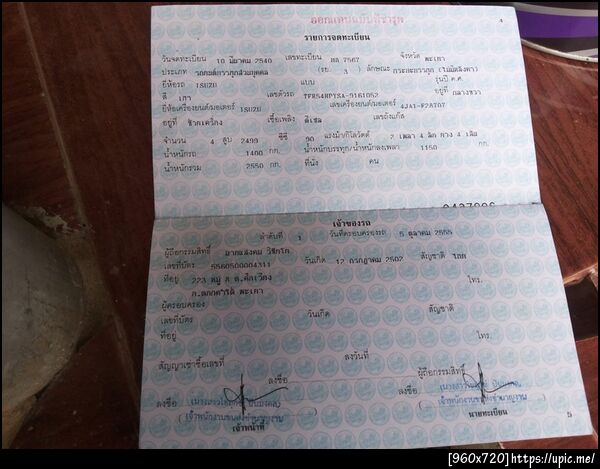 ออกแทนฉบับที่ชำรุด
4
รายการจดทะเบียน
วันจดทะเบียน 10 มีนาคม 2540 เลขทะเบียน 7567 จังหวัด พะเยา
ประเภท รถยนต์บรรทุกส่วนบุคคล (รย. 3 ) ลักษณะ กระบะบรรทุก (ไม่มีหลังคา)
ยี่ห้อรถ ISUZU แบบ รุ่นปี ค.ศ.
สี เทา เลขตัวรถ TFR54HPYSA-9161052 อยู่ที่ กลางขวา
ยี่ห้อเครื่องยนต์/มอเตอร์ ISUZU เลขเครื่องยนต์/มอเตอร์ 4JA1-F28707
อยู่ที่ ซ้ายเครื่อง เชื้อเพลิง ดีเซล เลขถังแก๊ส
จำนวน 4 สูบ 2499 ซีซี 90 แรงม้า/กิโลวัตต์ 2 เพลา 4 ล้อ ยาง 4 เส้น
น้ำหนักรถ 1400 กก. น้ำหนักบรรทุก/น้ำหนักลงเพลา 1150 กก.
น้ำหนักรวม 2550 กก. ที่นั่ง คน
เจ้าของรถ
ลำดับที่ 1 วันที่ครอบครองรถ 5 ตุลาคม 2555
ผู้ถือกรรมสิทธิ์
เลขที่บัตร 5560500004311 วันเกิด 12 กรกฎาคม 2502 สัญชาติ ไทย
ที่อยู่ 223 หมู่ ต.ห้วยแก้ว โทร.
พะเยา
ผู้ครอบครอง
เลขที่บัตร วันเกิด สัญชาติ
ที่อยู่ โทร.
สัญญาเช่าซื้อเลขที่ ลงวันที่
ลงชื่อ ผู้ถือกรรมสิทธิ์
ลงชื่อ ลงชื่อ
เจ้าพนักงานขนส่งชำนาญงาน เจ้าพนักงานขนส่งชำนาญงาน
เจ้าหน้าที่ นายทะเบียน
5
[960x720]https://upic.me/